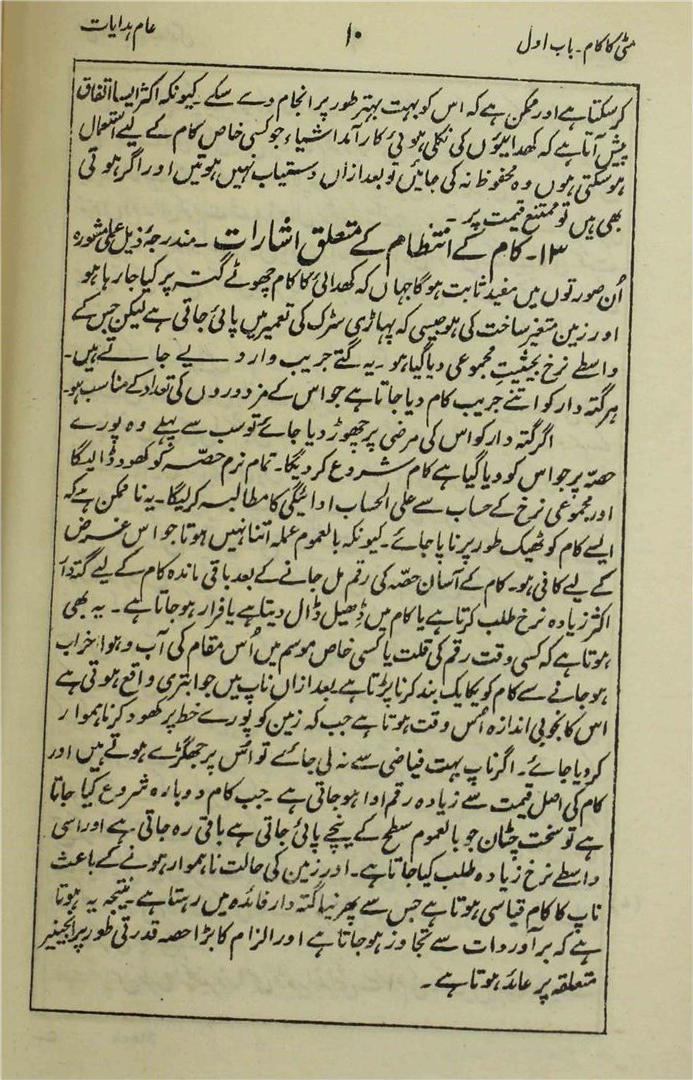 مٹی کا کام۔ باب اول
۱۰
عام ہدایات
کرسکتا ہے اور ممکن ہے کہ اس کو بہت بہتر طور پر انجام دے سکے۔ کیونکہ اکثر ایسا اتفاق
پیش آتا ہے کہ کھدائیوں کی نکلی ہوئی کارآمد اشیاء جو کسی خاص کام کے لیے استعمال
ہوسکتی ہوں وہ محفوظ نہ کی جائیں تو بعد ازاں دستیاب نہیں ہوتیں اور اگر ہوتی
بھی ہیں تو ممتنع قیمت پر۔
۱۳۔ کام کے انتظام کے متعلق اشارات۔ مندرجۂ ذیل عملی مشورہ
اُن صورتوں میں مفید ثابت ہوگا جہاں کہ کھدائی کا کام چھوٹے گتہ پر کیا جارہا ہو
اور زمین متغیر ساخت کی ہو جیسی کہ پہاڑی سڑک کی تعمیر میں پائی جاتی ہے لیکن جس کے
واسطے نرخ بحیثیت مجموعی دیا گیا ہو۔ یہ گتے جریب وار دیے جاتے ہیں۔
ہر گتہ دار کو اتنے جریب کام دیا جاتا ہے جو اس کے مزدوروں کی تعداد کے مناسب ہو۔
اگر گتہ دار کو اس کی مرضی پر چھوڑ دیا جائے تو سب سے پہلے وہ پورے
حصّہ پر جو اس کو دیا گیا ہے کام شروع کردیگا۔ تمام نرم حصّہ کو کھود ڈالیگا
اور مجموعی نرخ کے حساب سے علی الحساب ادائیگی کا مطالبہ کرلیگا۔ یہ ناممکن ہے کہ
ایسے کام کو ٹھیک طور پر ناپا جائے۔ کیونکہ بالعموم عملہ اتنا نہیں ہوتا جو اس غرض
کے لیے کافی ہو۔ کام کے آسان حصّہ کی رقم مل جانے کے بعد باقی ماندہ کام کے لیے گتہ دار
اکثر زیادہ نرخ طلب کرتا ہے یا کام میں ڈھیل ڈال دیتا ہے یا فرار ہوجاتا ہے۔ یہ بھی
ہوتا ہے کہ کسی وقت رقم کی قلت یا کسی خاص موسم میں اُس مقام کی آب و ہوا خراب
ہوجانے سے کام کو یکایک بند کرنا پڑتا ہے بعد ازاں ناپ میں جو ابتری واقع ہوتی ہے
اس کا بخوبی اندازہ اُس وقت ہوتا ہے جب کہ زمین کو پورے خط پر کھود کر ناہموار
کردیا جائے۔ اگر ناپ بہت فیاضی سے نہ لی جائے تو اُس پر جھگڑے ہوتے ہیں اور
کام کی اصل قیمت سے زیادہ رقم ادا ہوجاتی ہے۔ جب کام دوبارہ شروع کیا جاتا
ہے تو سخت چٹان جو بالعموم سطح کے نیچے پائی جاتی ہے باقی رہ جاتی ہے اور اسی
واسطے نرخ زیادہ طلب کیا جاتا ہے۔ اور زمین کی حالت ناہموار ہونے کے باعث
ناپ کا کام قیاسی ہوتا ہے جس سے پھر نیا گتہ دار فائدہ میں رہتا ہے۔ نتیجہ یہ ہوتا
ہے کہ برآوردات سے تجاوز ہوجاتا ہے اور الزام کا بڑا حصہ قدرتی طور پر انجینیر
متعلقہ پر عائد ہوتا ہے۔